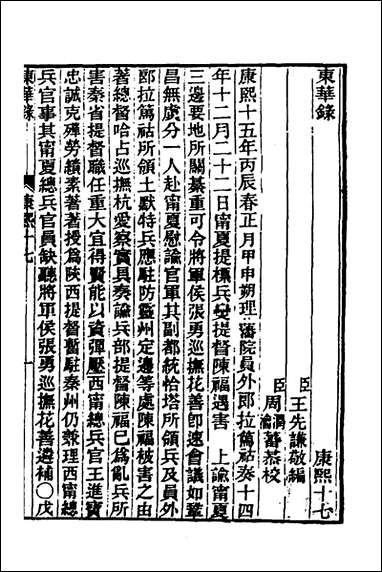 東華錄
康熙十七
臣王先謙敬編
臣周潤蕃 周瀹蕃恭校
康熙十五年丙辰春正月甲申朔理藩院員外郎拉篤祜奏十四
年十二月二十二日甯夏提標兵變提督陳福遇害 上諭甯夏
三邊要地所關綦重可令將軍侯張勇巡撫花善卽速會議如鞏
昌無虞分一人赴甯夏慰諭官軍其副都統恰塔所領兵及員外
郎拉篤祜所領土默特兵應駐防靈州定邊等處陳福被害之由
著總督哈占巡撫杭愛察實具奏諭兵部提督陳福已爲亂兵所
害秦省提督職任重大宜得賢能以資彈壓西甯總兵官王進寶
忠誠克殫勞績素著著授爲陝西提督暫駐秦州仍兼理西甯總
兵官事其甯夏總兵官員缺聽將軍侯張勇巡撫花善遴補○戊
東華錄 康熙十七 一